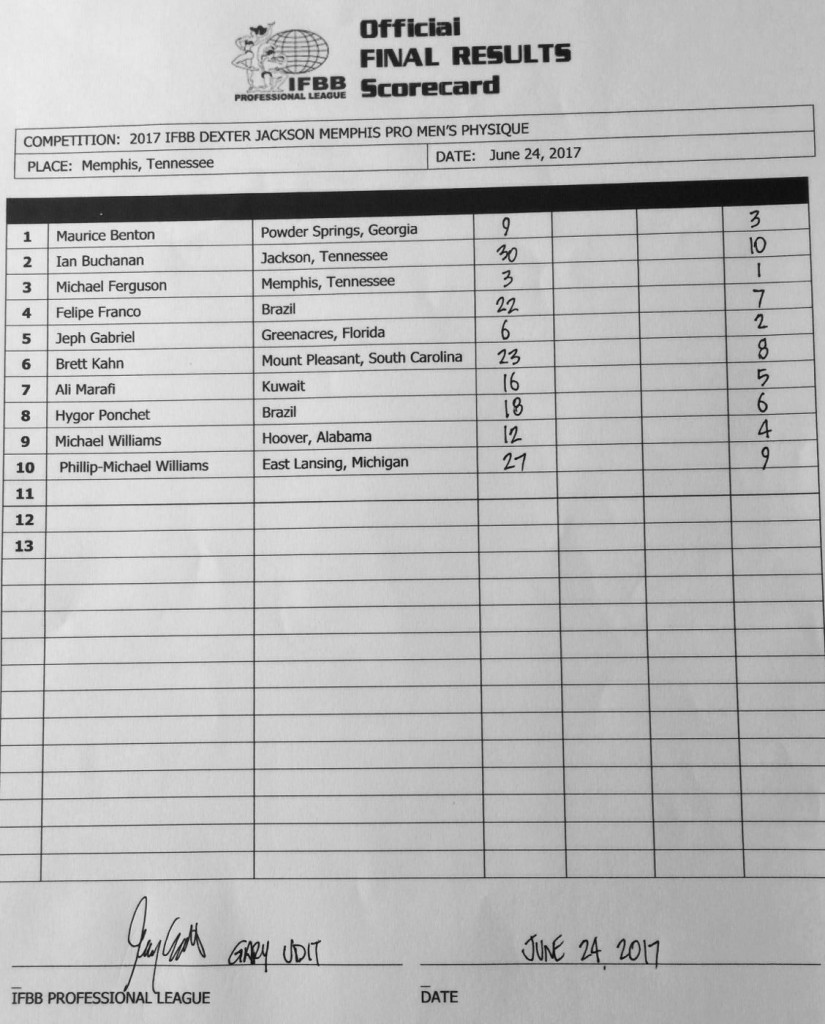 Official
FINAL RESULTS
Scorecard
IFBB
PROFESSIONAL LEAGUE
COMPETITION: 2017 IFBB DEXTER JACKSON MEMPHIS PRO MEN'S PHYSIQUE
PLACE: Memphis, Tennessee DATE: June 24, 2017
1 Maurice Benton Powder Springs, Georgia 9 3
2 Ian Buchanan Jackson, Tennessee 30 10
3 Michael Ferguson Memphis, Tennessee 3 1
4 Felipe Franco Brazil 22 7
5 Jeph Gabriel Greenacres, Florida 6 2
6 Brett Kahn Mount Pleasant, South Carolina 23 8
7 Ali Marafi Kuwait 16 5
8 Hygor Ponchet Brazil 18 6
9 Michael Williams Hoover, Alabama 12 4
10 Phillip-Michael Williams East Lansing, Michigan 27 9
11
12
13
GARY UDIT JUNE 24, 2017
IFBB PROFESSIONAL LEAGUE DATE